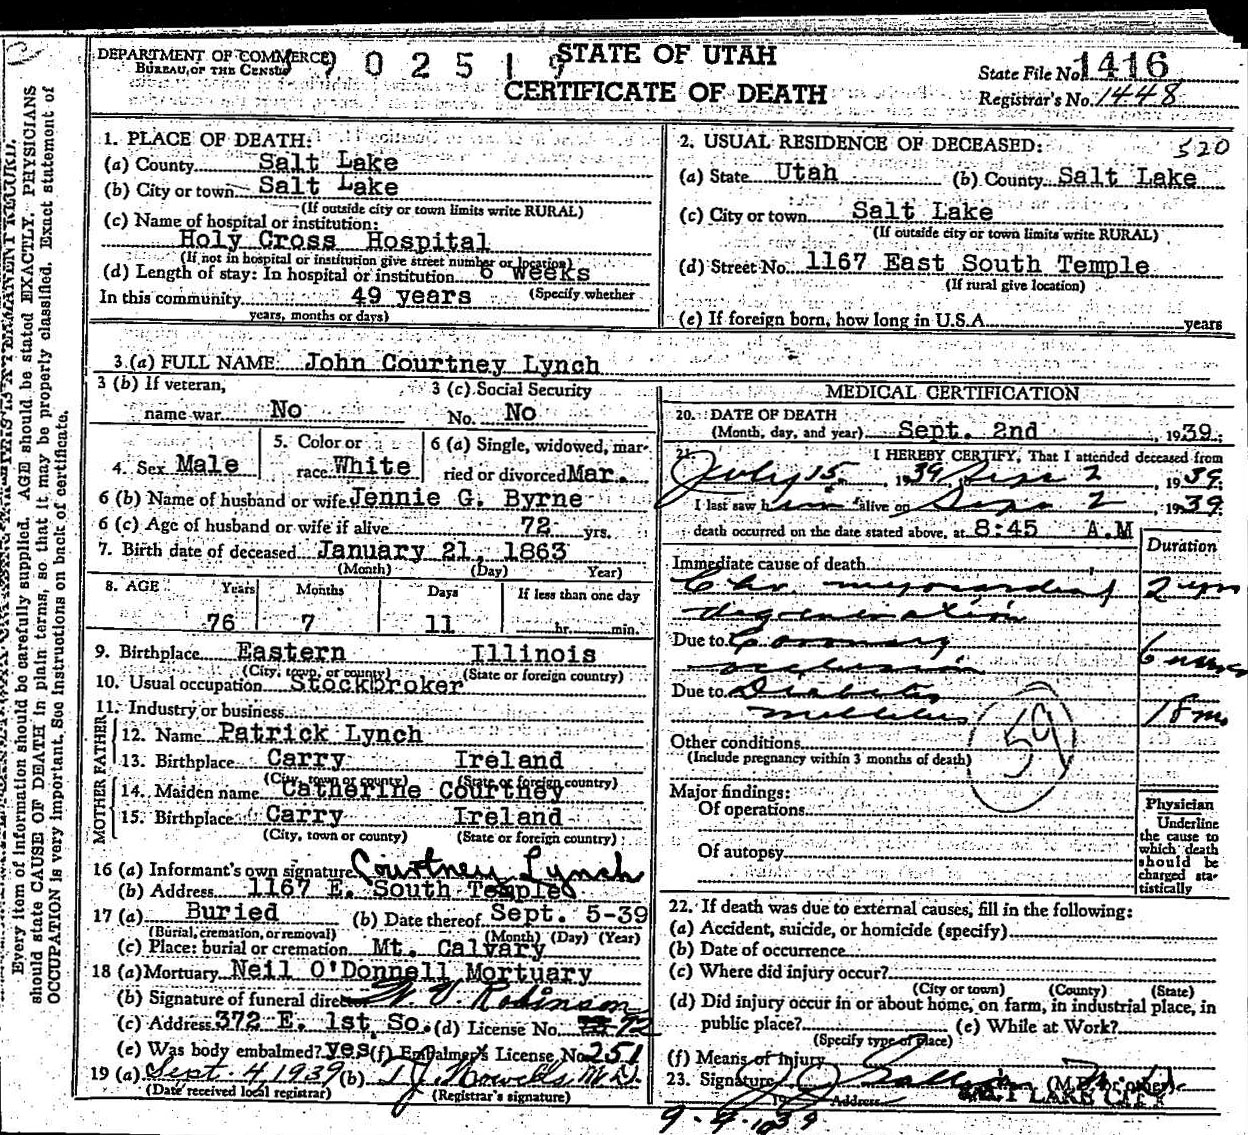 DEPARTMENT OF COMMERCE
BUREAU OF THE CENSUS
9 0 2 5 1 9
STATE OF UTAH
CERTIFICATE OF DEATH
State File No. 1416
Registrar's No. 1448
Every item of information should be carefully supplied. AGE should be stated EXACTLY. PHYSICIANS
should state CAUSE OF DEATH in plain terms, so that it may be properly classified. Exact statement of
OCCUPATION is very important. See Instructions on back of certificate.
1. PLACE OF DEATH:
(a) County Salt Lake
(b) City or town Salt Lake
(If outside city or town limits write RURAL)
(c) Name of hospital or institution:
Holy Cross Hospital
(If not in hospital or institution give street number or location)
(d) Length of stay: In hospital or institution 6 weeks
In this community 49 years (Specify whether
years, months or days)
2. USUAL RESIDENCE OF DECEASED: 520
(a) State Utah (b) County Salt Lake
(c) City or town Salt Lake
(If outside city or town limits write RURAL)
(d) Street No. 1167 East South Temple
(If rural give location)
(e) If foreign born, how long in U.S.A. years
3.(a) FULL NAME John Courtney Lynch
3 (b) If veteran,
name war No
3 (c) Social Security
No. No
4. Sex Male
5. Color or
race White
6 (a) Single, widowed, mar-
ried or divorced Mar.
6 (b) Name of husband or wife Jennie G. Byrne
6 (c) Age of husband or wife if alive 72 yrs.
7. Birth date of deceased January 21, 1863
(Month) (Day) Year)
8. AGE Years Months Days If less than one day
76 7 11 hr. min.
9. Birthplace Eastern Illinois
(City, town, or county) (State or foreign country)
10. Usual occupation Stockbroker
11. Industry or business
FATHER
12. Name Patrick Lynch
13. Birthplace Carry Ireland
(City, town or county) (State or foreign country)
MOTHER
14. Maiden name Catherine Courtney
15. Birthplace Carry Ireland
(City, town or county) (State or foreign country)
16 (a) Informant's own signature Courtney Lynch
(b) Address 1167 E. South Temple
17 (a) Buried (b) Date thereof Sept. 5-39
(Burial, cremation, or removal) (Month) (Day) (Year)
(c) Place: burial or cremation Mt. Calvary
18 (a) Mortuary Neil O'Donnell Mortuary
(b) Signature of funeral director W. V. Robinson
(c) Address 372 E. 1st. So. (d) License No. 92
(e) Was body embalmed? yes (f) Embalmer's License No. 251
19 (a) Sept. 4, 1939 (b) T. J. Howells M.D.
(Date received local registrar) (Registrar's signature)
MEDICAL CERTIFICATION
20. DATE OF DEATH
(Month, day, and year) Sept. 2nd, 1939;
21. I HEREBY CERTIFY, That I attended deceased from
July 15, 1939 Sept 2, 1939.
I last saw him alive on Sept 2, 1939
death occurred on the date stated above, at 8:45 A.M
Duration
Immediate cause of death
Chr. myocardial 2 yrs
degeneration
Due to Coronary
occlusion
Due to Diabetes
mellitus
59
Other conditions
(Include pregnancy within 3 months of death)
Major findings:
Of operations
Of autopsy
Physician
Underline
the cause to
which death
should be
charged sta-
tistically
22. If death was due to external causes, fill in the following:
(a) Accident, suicide, or homicide (specify)
(b) Date of occurrence
(c) Where did injury occur?
(City or town) (County) (State)
(d) Did injury occur in or about home, on farm, in industrial place, in
public place? (e) While at Work?
(Specify type of place)
(f) Means of injury
23. Signature (M.D. or other)
Address SALT LAKE CITY
9-4-1939